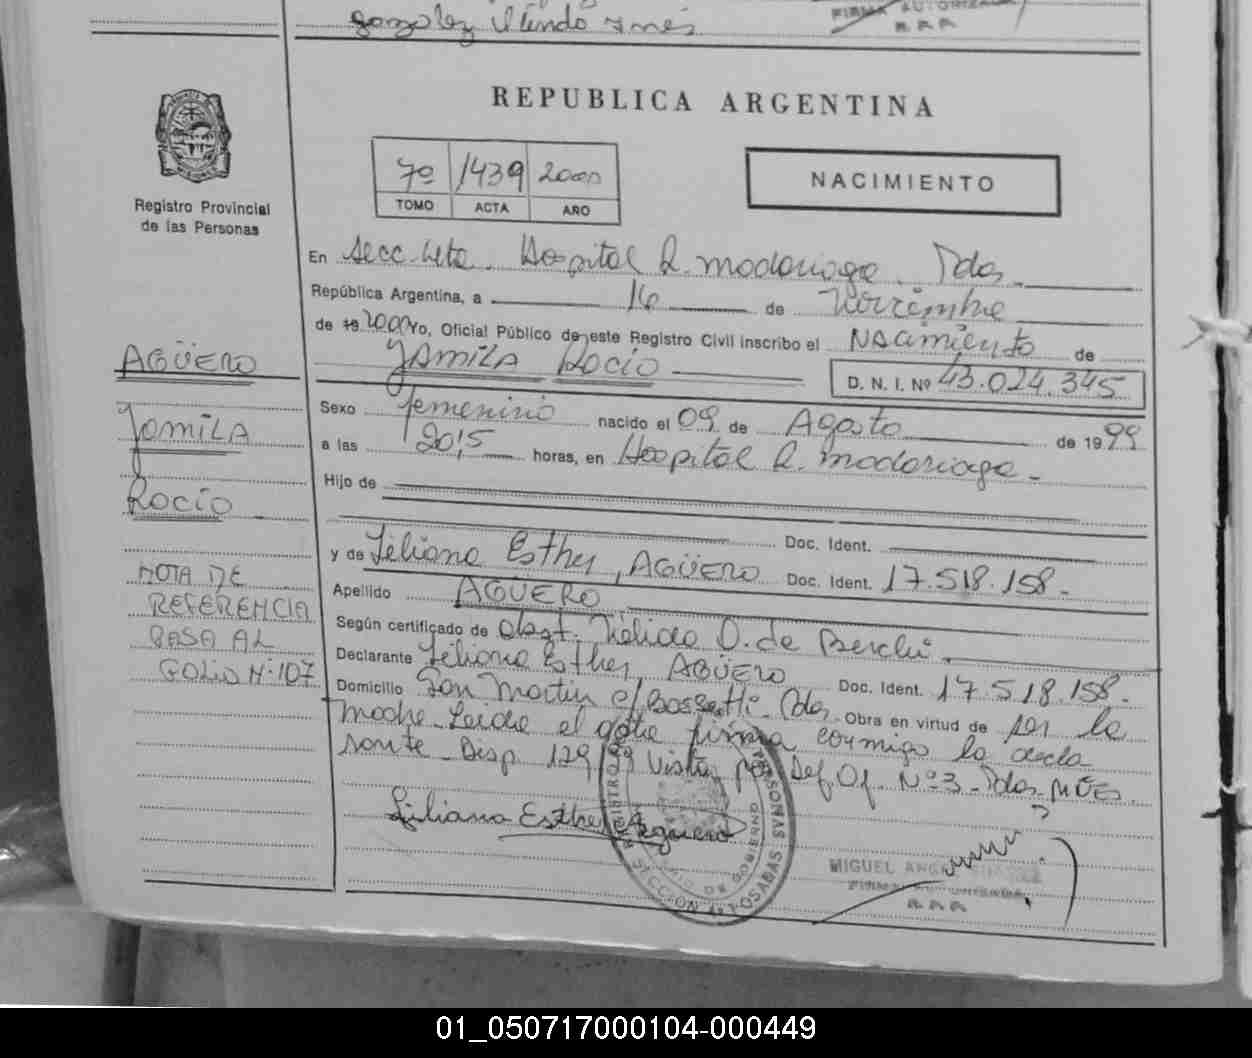 gonzalez
FIRMA AUTORIZADA
REPUBLICA ARGENTINA
7º 1439 2000
TOMO ACTA AÑO
NACIMIENTO
Registro Provincial
de las Personas
En Secc. 4ta. Hospital R. Madariaga. Pdas.
República Argentina, a 16 de Noviembre
de 19 2000 Yo, Oficial Público de este Registro Civil inscribo el NAcimiento de
YAMILA ROCIO
D. N. I. Nº 43.024.345
AGÜERO
Yamila
Rocío
Sexo femenino nacido el 09 de Agosto de 1999
a las 20,15 horas, en Hospital R. Madariaga -
Hijo de
Doc. Ident.
y de Liliana Esther, AGÜERO Doc. Ident. 17.518.158.-
Apellido AGÜERO
Según certificado de Obst. D. de
Declarante Liliana Esther, AGÜERO Doc. Ident. 17.518.158.-
Domicilio San Martin c/ Pdas. Obra en virtud de ser la
madre. Leida el acta firma conmigo la decla
rante. Disp. 129/99 Vista por Def. Of. Nº 3 - Pdas. Mnes.
NOTA DE
REFERENCIA
PASA AL
FOLIO Nº 107
Liliana Esther Aguero
SECCION 4ta POSADAS
MIGUEL ANGEL
FIRMA AUTORIZADA
01_050717000104-000449